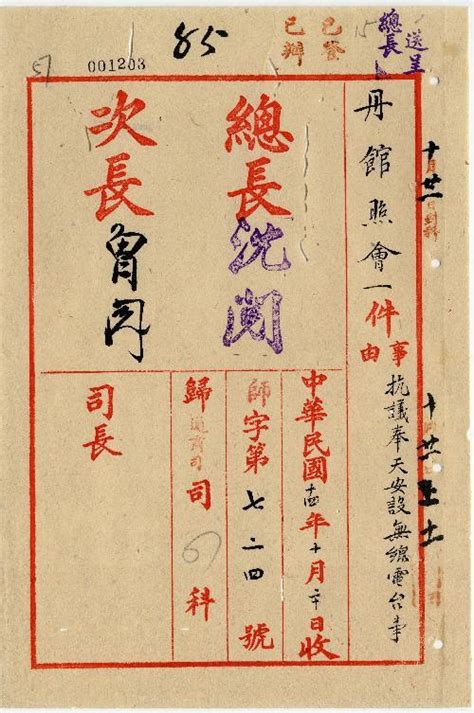 送呈
總長
已登
已辦
15
85
001203
51
十月廿一日
十廿二
丹館照會一件
事由
抗議奉天安設無線電台事
總長 沈閱
次長 曾閱
中華民國十四年十月二十日收
師字第七二四號
歸通商司 科
司長